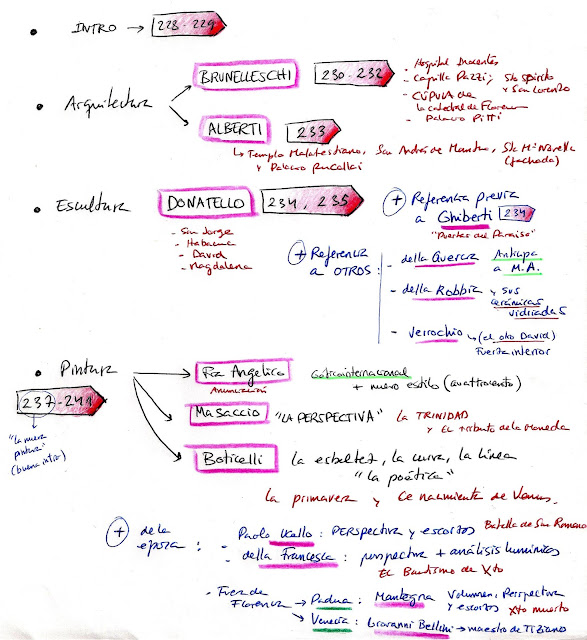 INTRO → 228-229
Arquitectura
BRUNELLESCHI 230-232
- Hospital Inocentes
- Capilla Pazzi; Sto Spirito y San Lorenzo
- CÚPULA de la catedral de Florencia
- Palacio Pitti
ALBERTI 233
↳ Templo Malatestiano, San Andrés de Mantua, Sta Mª Novella (fachada)
y Palacio Rucellai
Escultura DONATELLO 234, 235
- San Jorge
- Habacuc
- David
- Magdalena
+ Referencia previa
a Ghiberti 234
"Puertas del Paraíso"
+ Referencia
a OTROS:
- della Quercia Anticipa
a M.A.
- della Robbia y sus
cerámicas
vidriadas
- Verrochio → (el otro David)
Fuerza interior
Pintura
237-241
"la nueva
pintura"
(buena intro)
Fra Angelico Gótico internacional
+ nuevo estilo (quattrocento)
Anunciación
Masaccio "LA PERSPECTIVA" la TRINIDAD
y El tributo de la moneda
Boticelli la esbeltez, la curva, la línea
"la poética"
La primavera y el nacimiento de Venus.
+ de la
época :
- Paolo Ucello : PERSPECTIVA y escorzos Batalla de San Romano
- della Francesca : perspectiva + análisis lumínicos
El Bautismo de Xto
- Fuera de
Florencia
→ Padua : Mantegna Volumen, Perspectiva
y escorzos Xto muerto
→ Venecia : Giovanni Bellini → maestro de Tiziano